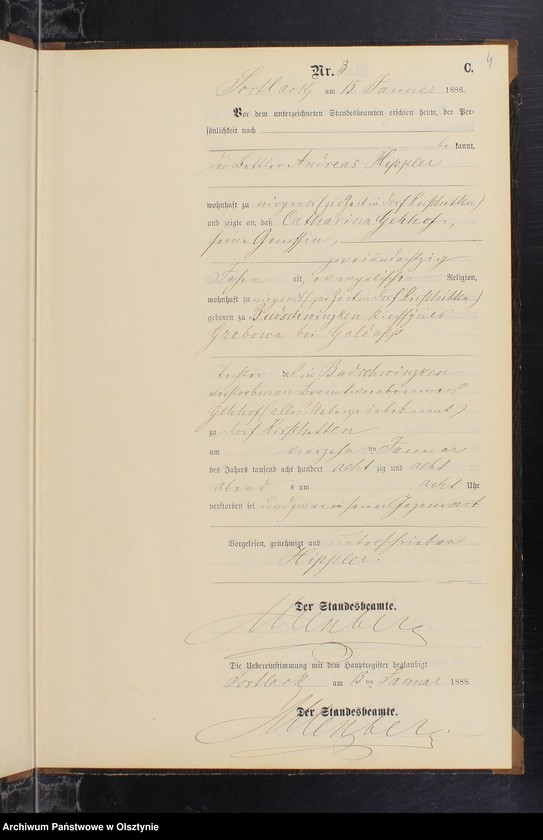 4
Nr. 3 C.
Tortlack, am 15 Januar 1888.
Vor dem unterzeichneten Standesbeamten erschien heute, der Per-
sönlichkeit nach
be kannt,
der Bettler Andreas Hippler
wohnhaft zu nirgends (zur Zeit in dorf
und zeigte an, daß Catharina Gehhof,
seine Genossin,
zweiundachtzig
Jahre alt, evangelischer Religion,
wohnhaft zu nirgends (zur Zeit in dorf
geboren zu Budschwingken
Grabowa bei Goldapp
Tochter des in Budschwingken
verstorbenen Branntweinbrenners
Gehhof (alles Uebrige unbekannt)
zu dorf
am vierzehn ten Januar
des Jahres tausend acht hundert acht zig und acht
Abend s um acht Uhr
verstorben sei und zwar in seiner Gegenwart
Vorgelesen, genehmigt und unterschrieben
Hippler.
Der Standesbeamte.
Die Uebereinstimmung mit dem Hauptregister beglaubigt.
Tortlack, am 15 ten Januar 1888.
Der Standesbeamte.
Archiwum Państwowe w Olsztynie